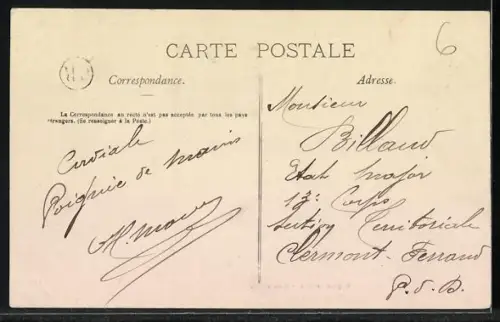 CARTE POSTALE
6
Correspondance.
La Correspondance au recto n'est pas acceptée par tous les pays
étrangers. (Se renseigner à la Poste.)
Cordiale
Poignée de mains
Adresse.
Monsieur
Billaud
Etat major
13e Corps
Section Territoriale
Clermont-Ferrand
P.-d.-D.